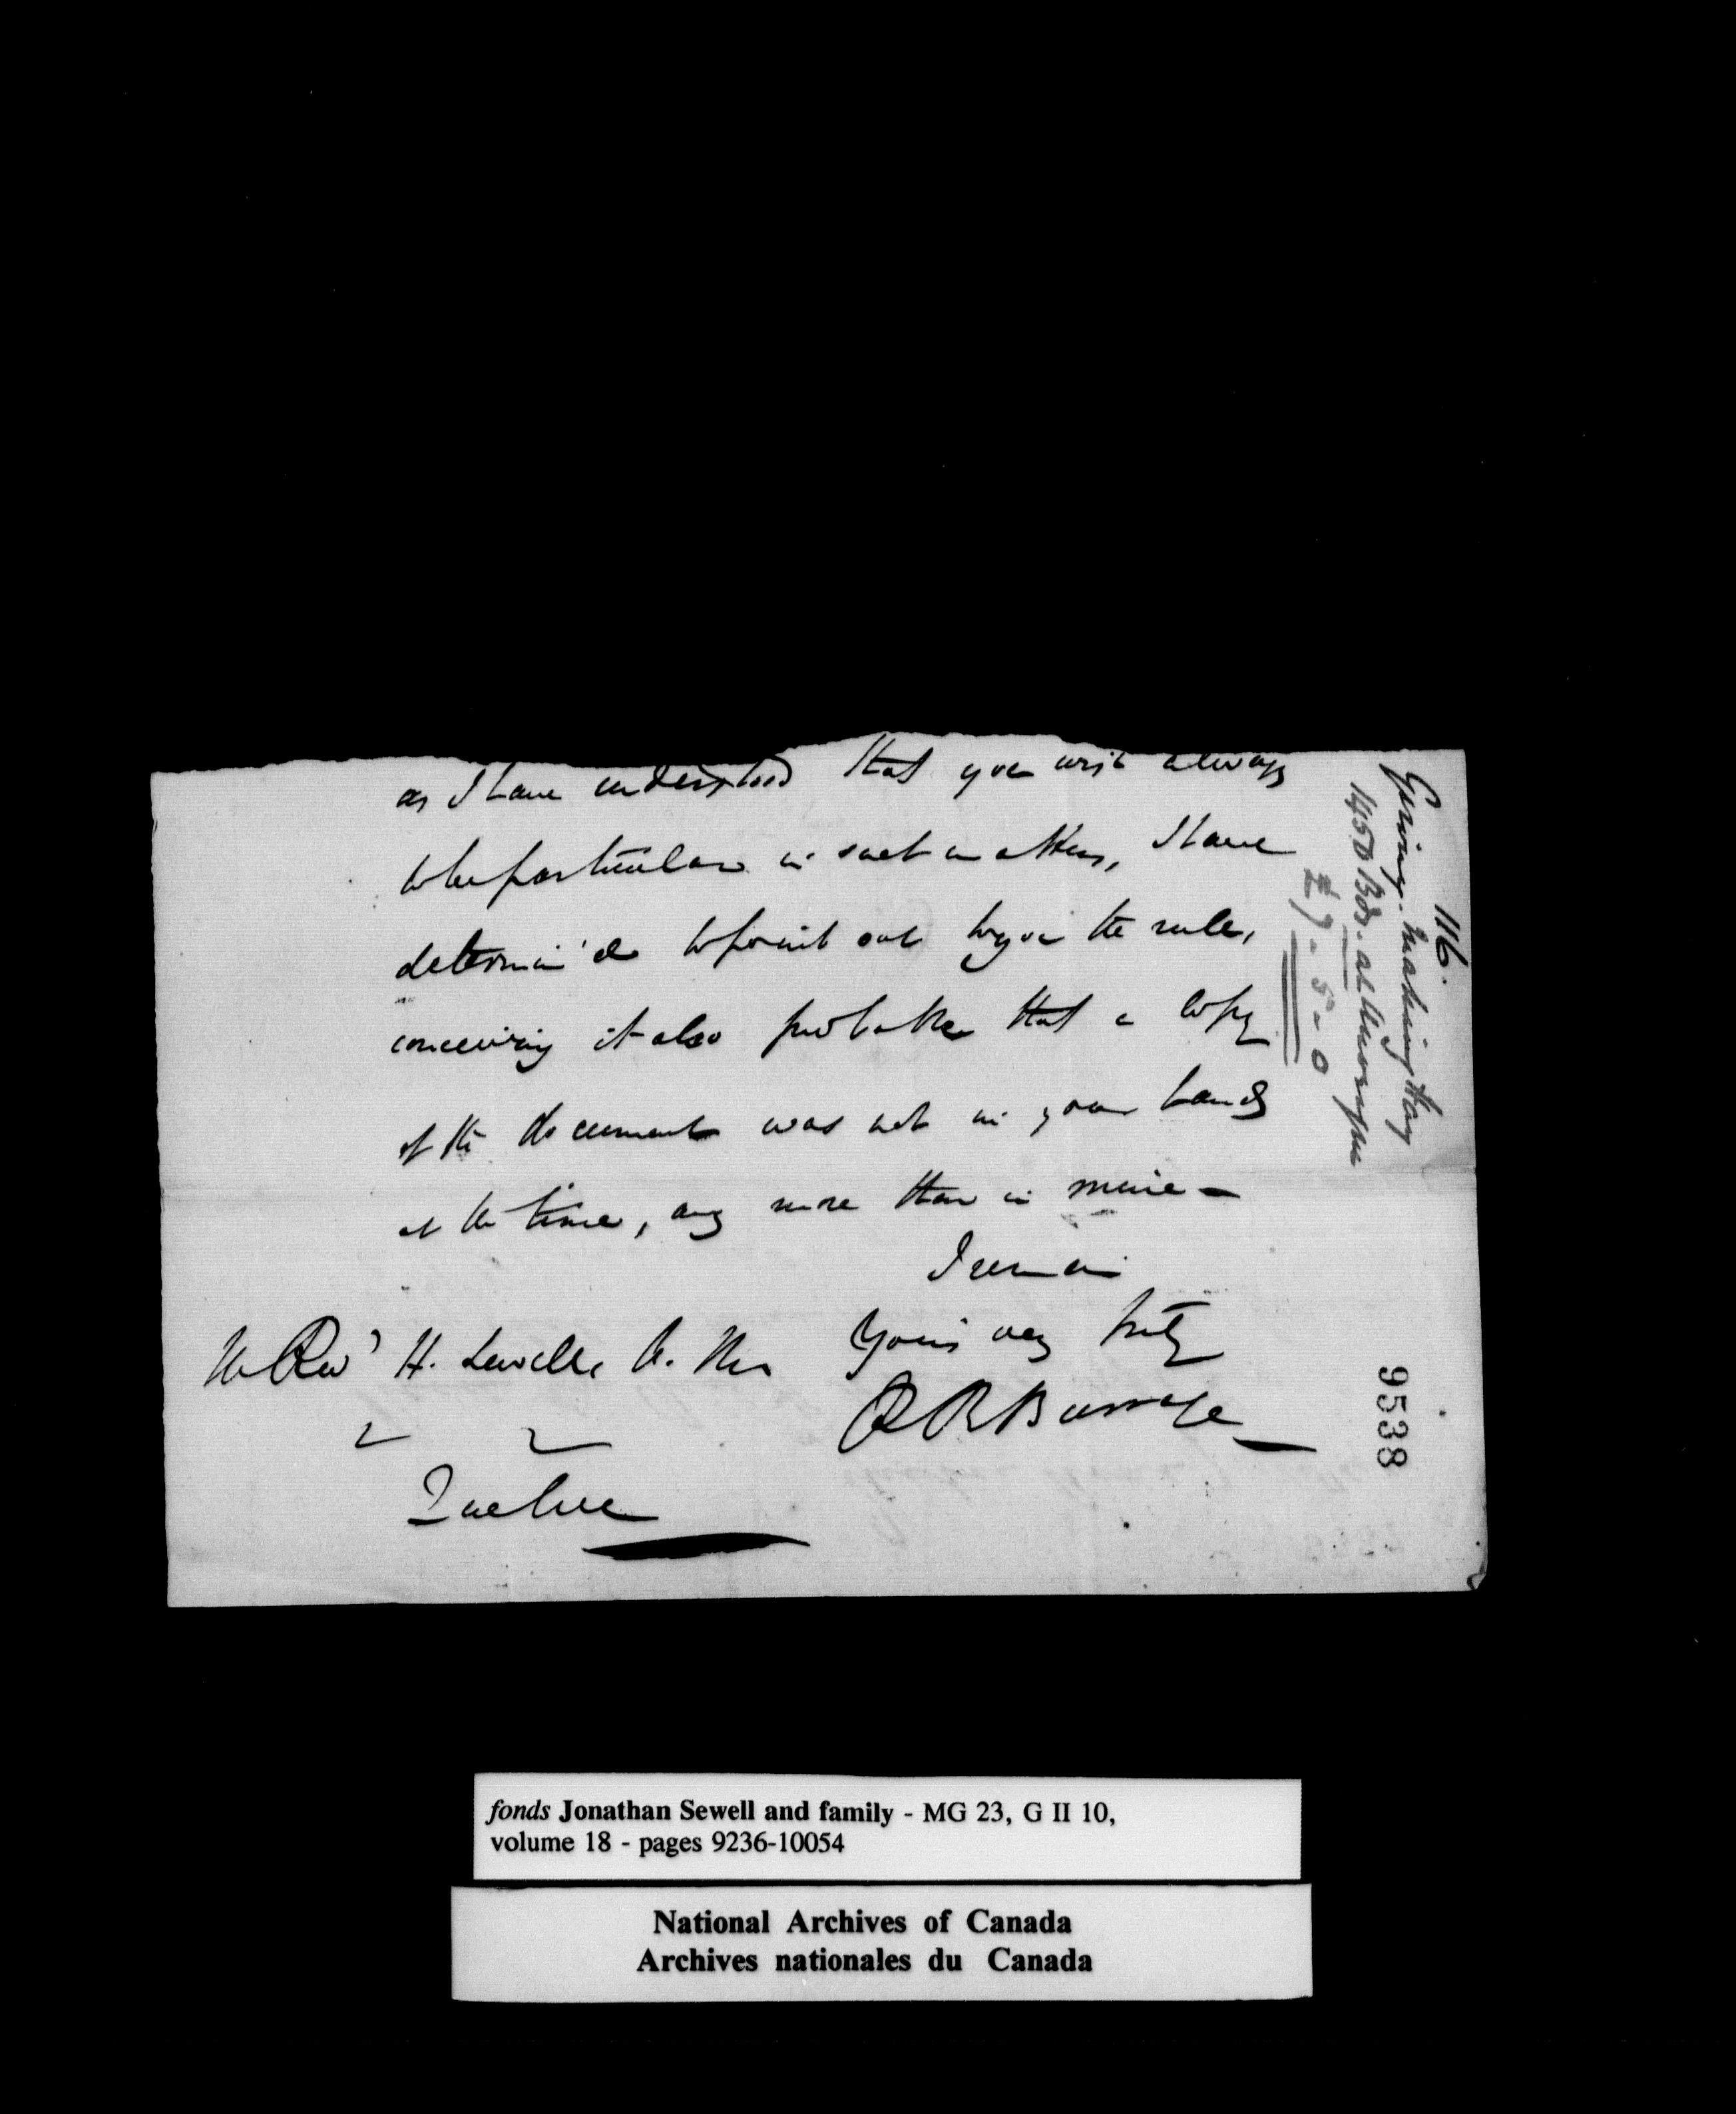 as I have understood that you wish always
to be particular in such matters, I have
determin'd to point out to you the rule,
conceiving it also probable that a copy
of the document was not in your hands
at the time, any more than in mine —
I remain
Yours very truly
R R Burrage
The Revd H. Sewell,
Quebec
116.
making Hay
1450 Bds. at
£7-5-0
9538
fonds Jonathan Sewell and family - MG 23, G II 10,
volume 18 - pages 9236-10054
National Archives of Canada
Archives nationales du Canada